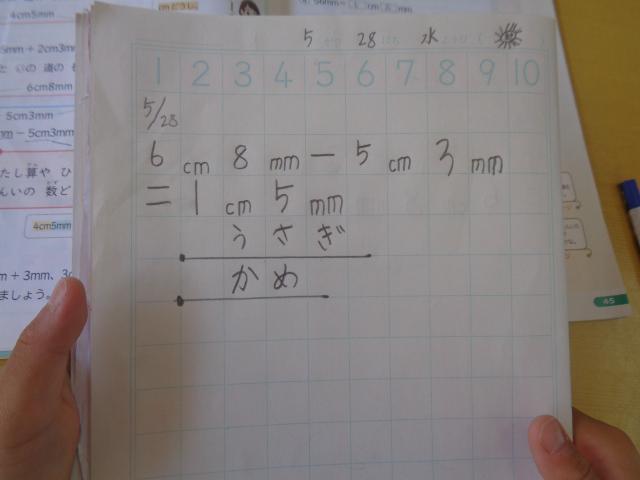 5 28 水
1 2 3 4 5 6 7 8 9 10
5/28
6 cm 8 mm ー 5 cm 3 mm
= 1 cm 5 mm
うさぎ
かめ
4cm5mm
5mm + 2cm3mm
6cm8mm
5cm3mm
mm − 5cm3mm
たし算や ひ
んいの 数ど
4cm5mm
m + 3mm、3c
ましょう。
45